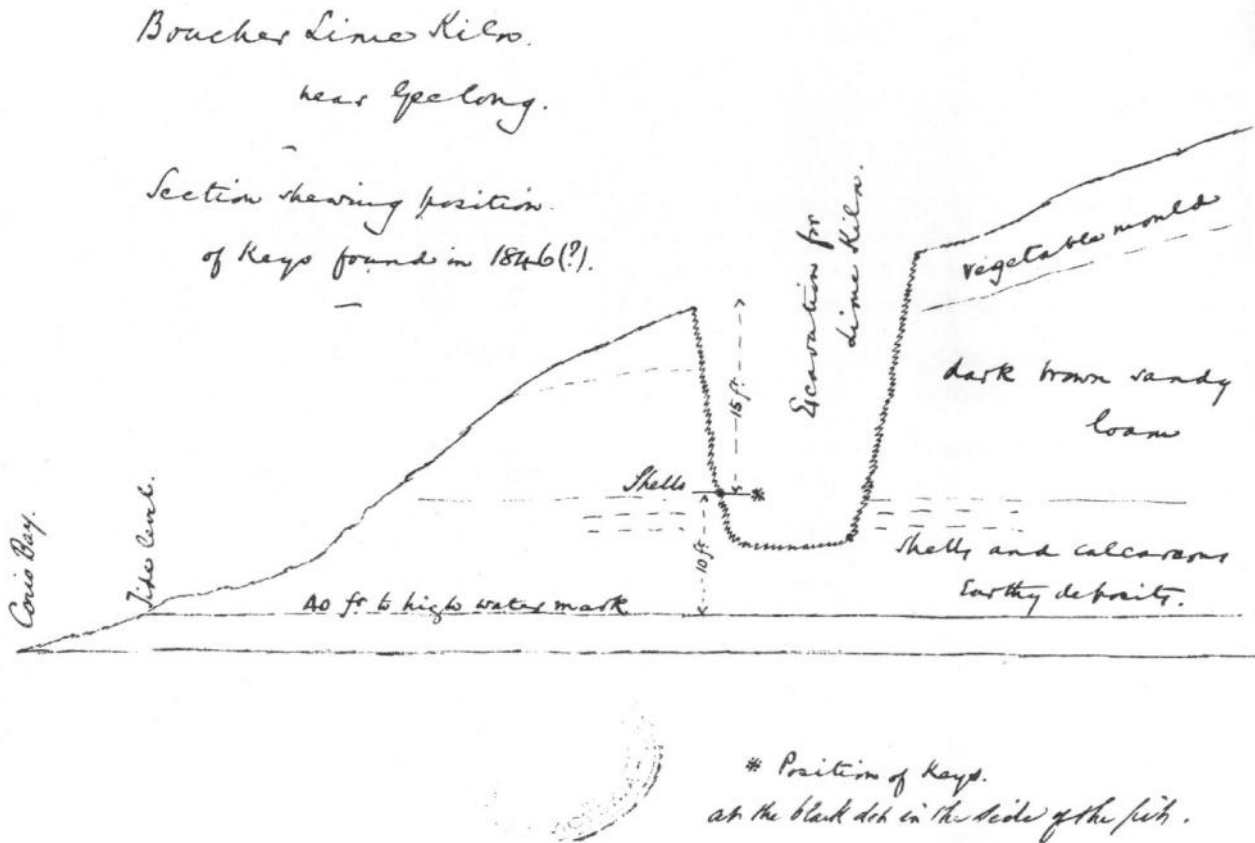 Boucher Lime Kiln.
near Geelong.
Section shewing position
of Keys found in 1846(?).
Excavation for
Lime Kiln.
vegetable mould
dark brown sandy
loam
15 ft.
Shells
10 ft.
shells and calcareous
Earthy deposits.
Corio Bay.
Tide level.
40 ft. to high water mark
* Position of Keys.
at the black dot in the side of the pit.